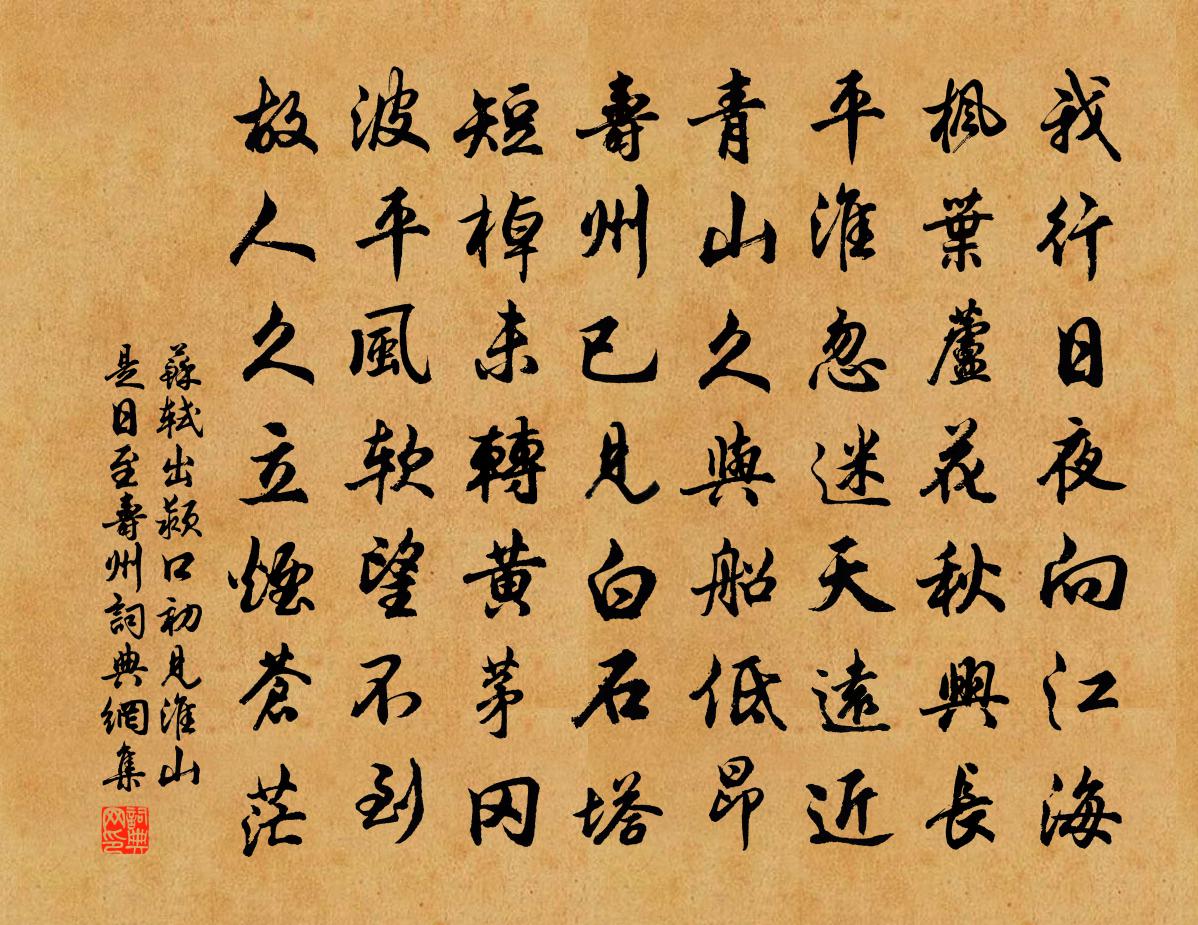 我行日夜向江海
楓葉蘆花秋興長
平淮忽迷天遠近
青山久與船低昂
壽州已見白石塔
短棹未轉黃茅冈
波平風软望不到
故人久立煙蒼茫
蘇轼出潁口初見淮山
是日至壽州詞典網集
詞典
网印